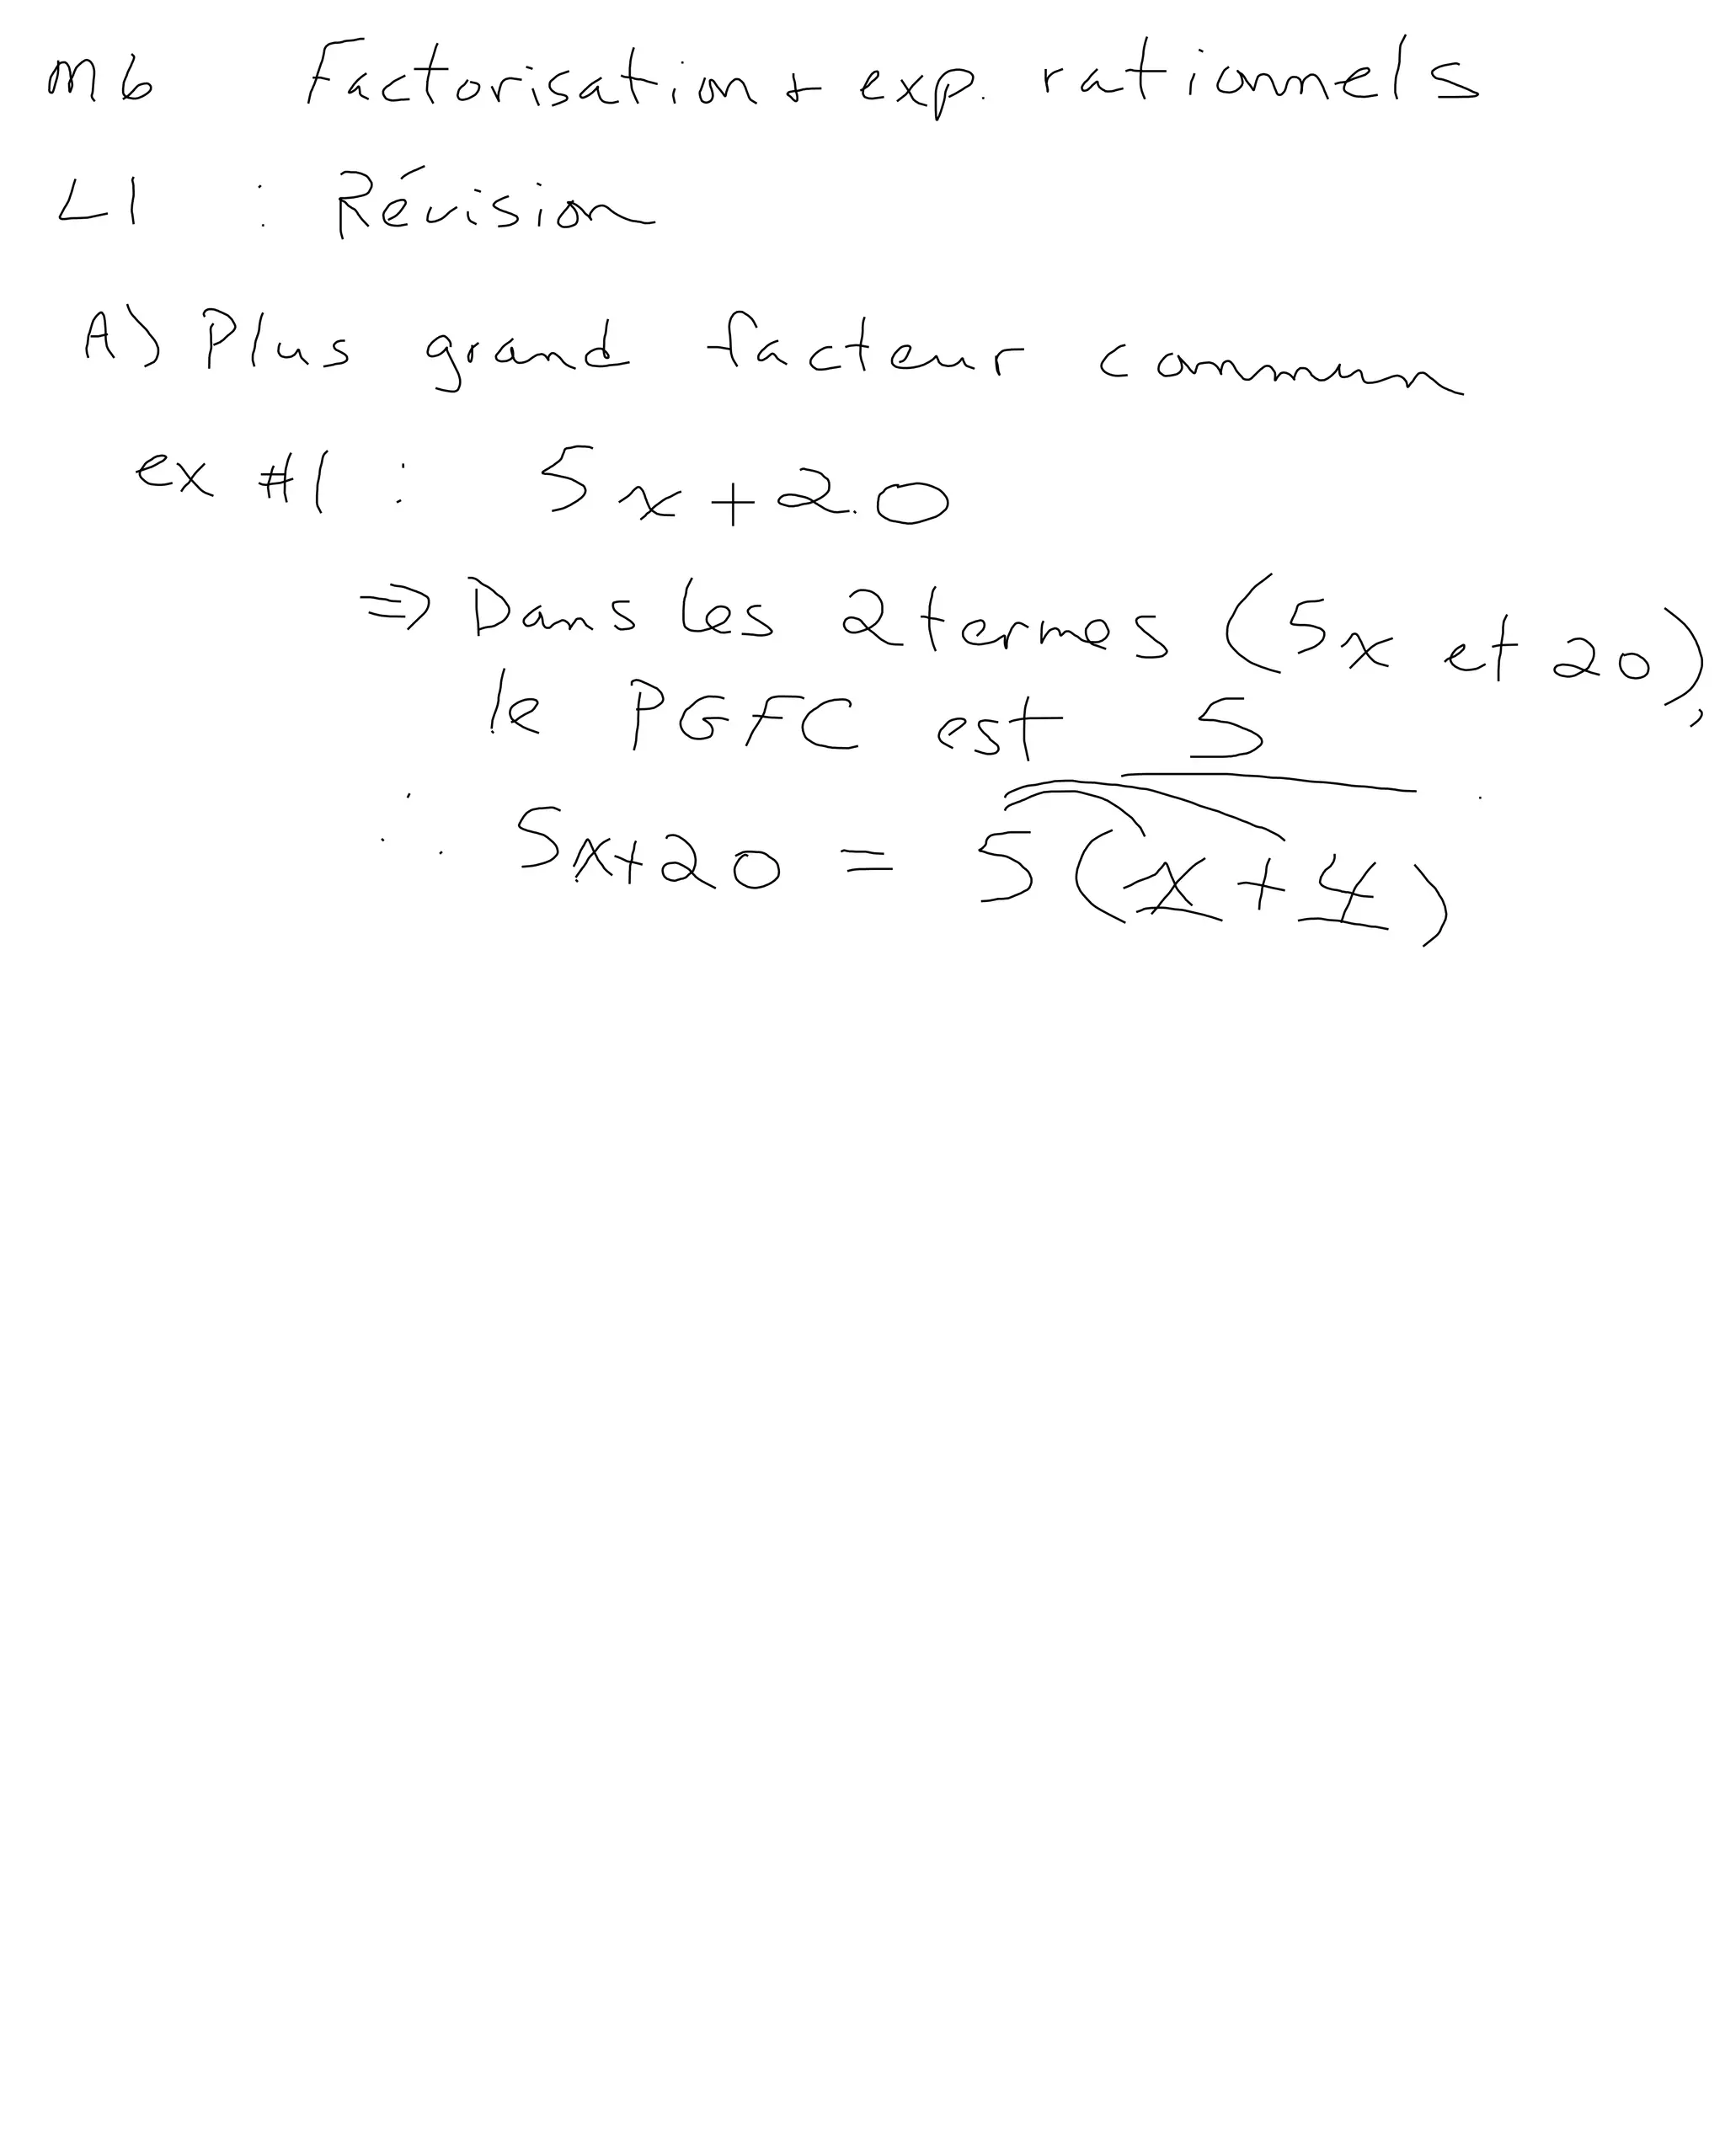 M6 Factorisation + exp. rationnels
L1 : Révision
A) Plus grand facteur commun
ex #1 : 5x+20
⇒ Dans les 2 termes (5x et 20),
le PGFC est 5
∴ 5x+20 = 5(x+4)